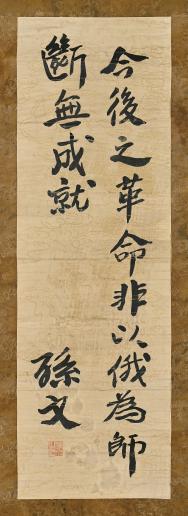 今後之革命非以俄為師
斷無成就
孫文